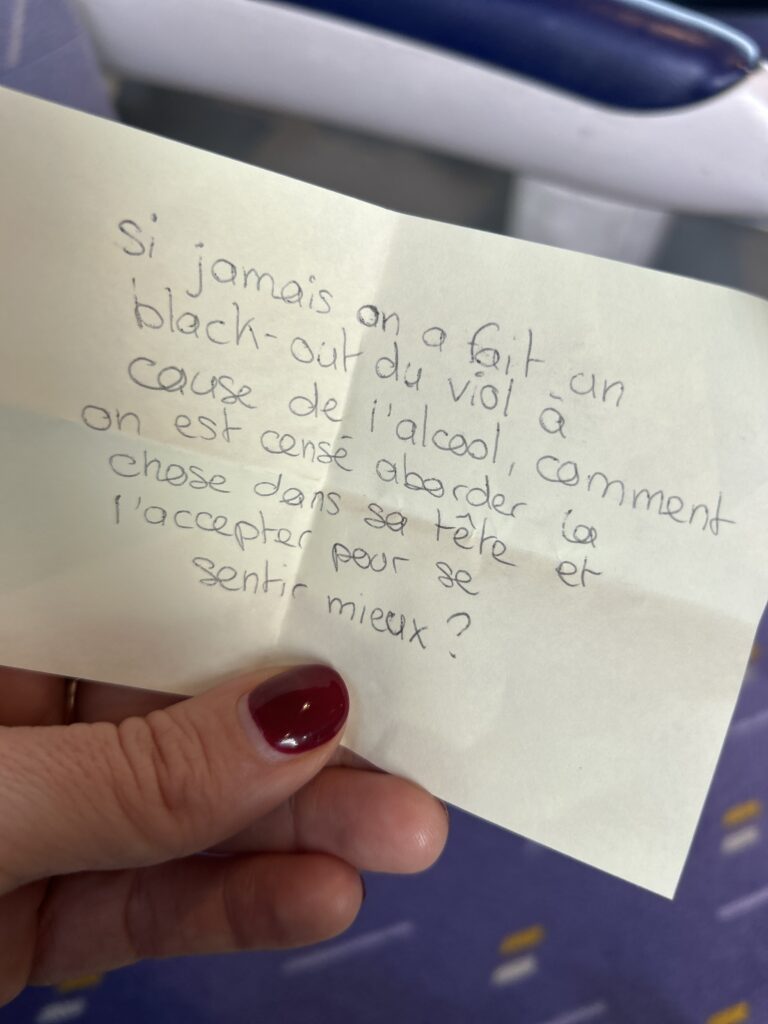 Si jamais on a fait un
black-out du viol à
cause de l'alcool, comment
on est censé aborder la
chose dans sa tête et
l'accepter pour se
sentir mieux ?